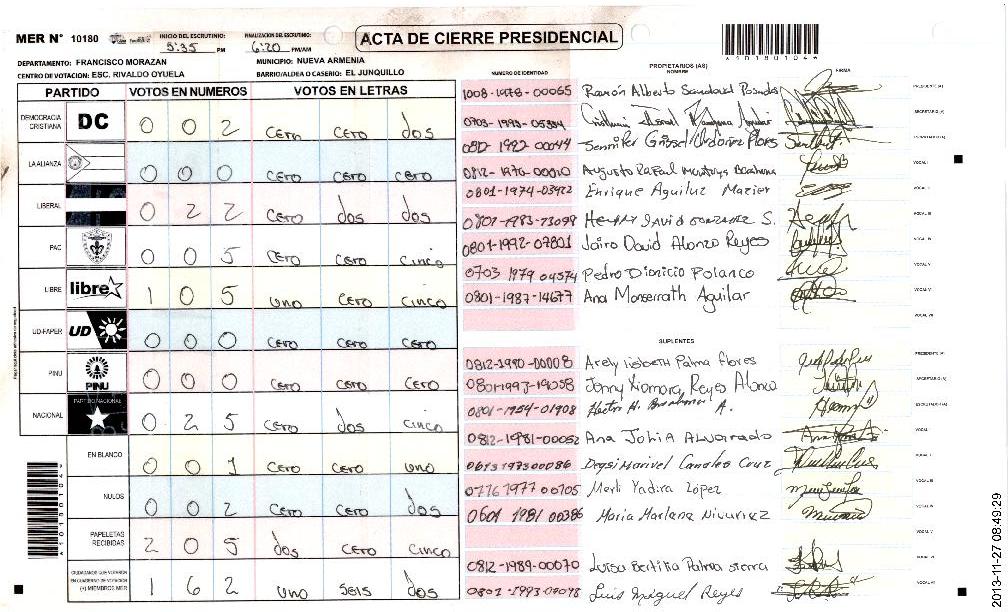 MER N° 10180 INICIO DEL ESCRUTINIO: 5:35 PM FINALIZACION DEL ESCRUTINIO: 6:20 PM/AM ACTA DE CIERRE PRESIDENCIAL
*10180104*
DEPARTAMENTO: FRANCISCO MORAZAN MUNICIPIO: NUEVA ARMENIA
CENTRO DE VOTACION: ESC. RIVALDO OYUELA BARRIO/ALDEA O CASERIO: EL JUNQUILLO
PARTIDO VOTOS EN NUMEROS VOTOS EN LETRAS
DEMOCRACIA CRISTIANA DC 0 0 2 CERO CERO dos
LA ALIANZA 0 0 0 CERO CERO CERO
LIBERAL 0 2 2 CERO dos dos
PAC 0 0 5 CERO CERO CINCO
LIBRE libre 1 0 5 UNO CERO CINCO
UD-FAPER UD 0 0 0 CERO CERO CERO
PINU PINU 0 0 0 CERO CERO CERO
NACIONAL PARTIDO NACIONAL 0 2 5 CERO dos CINCO
EN BLANCO 0 0 1 CERO CERO UNO
NULOS 0 0 2 CERO CERO dos
PAPELETAS RECIBIDAS 2 0 5 dos CERO CINCO
CIUDADANOS QUE VOTARON EN CUADERNO DE VOTACION (+) MIEMBROS MER 1 6 2 UNO SEIS dos
*10180104*
NUMERO DE IDENTIDAD PROPIETARIOS (AS) NOMBRE FIRMA
1008-1978-00065 Ramón Alberto Sandoval PRESIDENTE (A)
0703-1993-05334 SECRETARIO (A)
0812 1992-00044 Jennifer Flores
0812-1970-00010 Augusto Rafael VOCAL I
0801-1974-03922 Enrique Aguiluz Mazier VOCAL II
0801-1983-73098 Henry David Gonzalez S. VOCAL III
0801-1992-07801 Jairo David Alonzo Reyes VOCAL IV
0703 1979 04574 Pedro Dionicio Polanco VOCAL V
0801-1987-14677 Ana Monserrath Aguilar
SUPLENTES
0812-1990-00008 Arely Lisbeth Palma Flores PRESIDENTE (A)
0801-1993-19058 Jenny Xiomara Reyes Alonzo SECRETARIO (A)
0801-1954-01908 Hector H. A.
0812-1981-00052 Ana Julia Alvarado VOCAL
0613 1973 00086 Deysi Marivel Canales Cruz VOCAL I
0716 1977 00105 Merli Yadira López VOCAL III
0601 1981 00386 Maria Marlene
0812-1989-00070 Luisa Bertilia Palma sierra
0801-1993-07078 Luis Miguel Reyes
2013-11-27 08:49:29